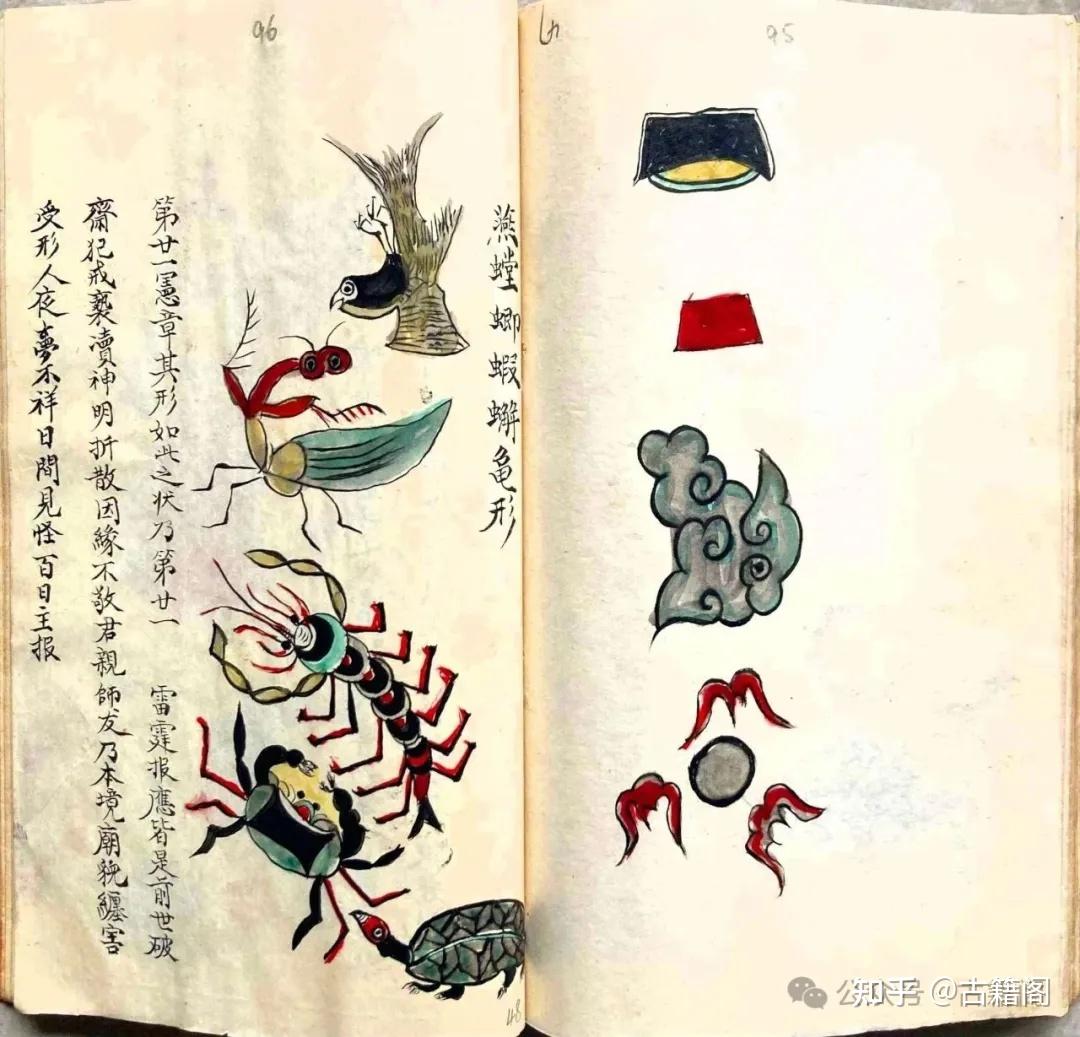 95
96
燕螳螂蝦蠏龜形
第廿一憲章其形如此之状乃第廿一 雷霆报應皆是前世破
齋犯戒褻瀆神明折散因緣不敬君親師友乃本境廟貌纏害
受形人夜夢不祥日間見怪百日主报
48
知乎 @古籍阁